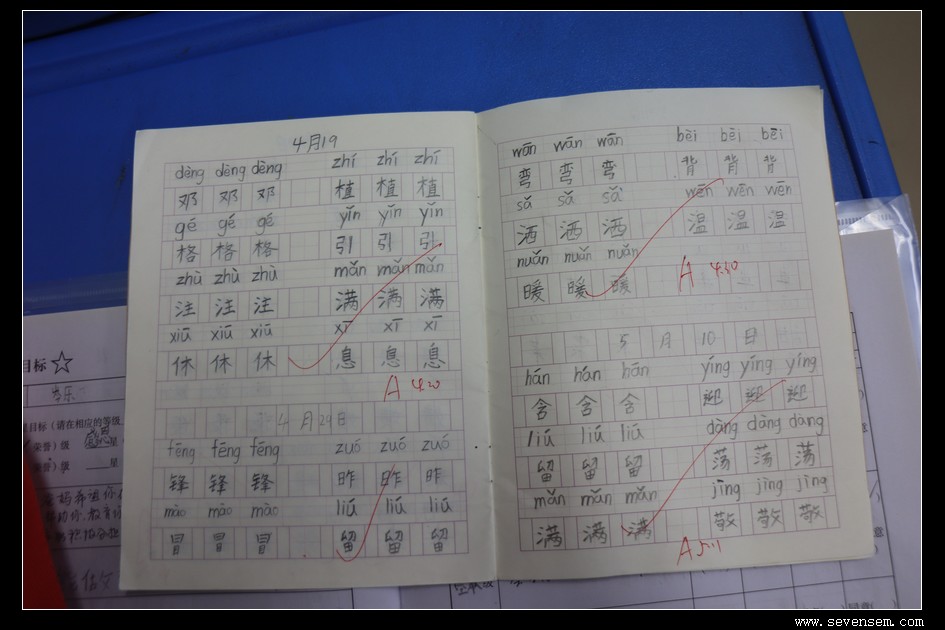 4月19
dèng dèng dèng zhí zhí zhí
邓 邓 邓 植 植 植
gé gé gé yǐn yǐn yǐn
格 格 格 引 引 引
zhù zhù zhù mǎn mǎn mǎn
注 注 注 满 满 满
xiū xiū xiū xī xī xī
休 休 休 息 息 息
A 4.20
4月29日
fēng fēng fēng zuó zuó zuó
锋 锋 锋 昨 昨 昨
mào mào mào liú liú liú
冒 冒 冒 留 留 留
wān wān wān bèi bēi bēi
弯 弯 弯 背 背 背
sǎ sǎ sǎ wēn wēn wēn
洒 洒 洒 温 温 温
nuǎn nuǎn nuǎn
暖 暖 暖
A 4.30
5月10日
hán hán hán yíng yíng yíng
含 含 含 迎 迎 迎
liú liú liú dàng dàng dàng
留 留 留 荡 荡 荡
mǎn mǎn mǎn jìng jìng jìng
满 满 满 敬 敬 敬
A 5.11
目标 ☆
目标（请在相应的等级
荣誉）级 星
荣誉）级 星
www.sevensem.com